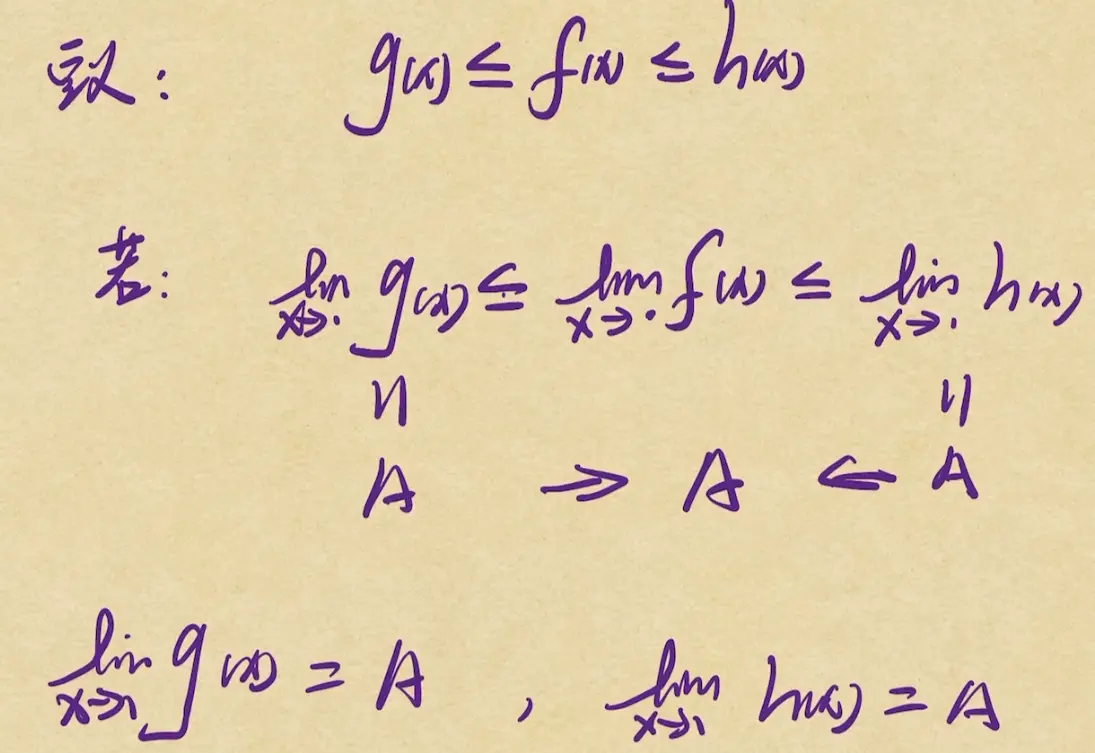 定义: g(x) ≤ f(x) ≤ h(x)
若: lim x→· g(x) ≤ lim x→· f(x) ≤ lim x→· h(x)
|| ||
A → A ← A
lim x→1 g(x) = A , lim x→1 h(x) = A